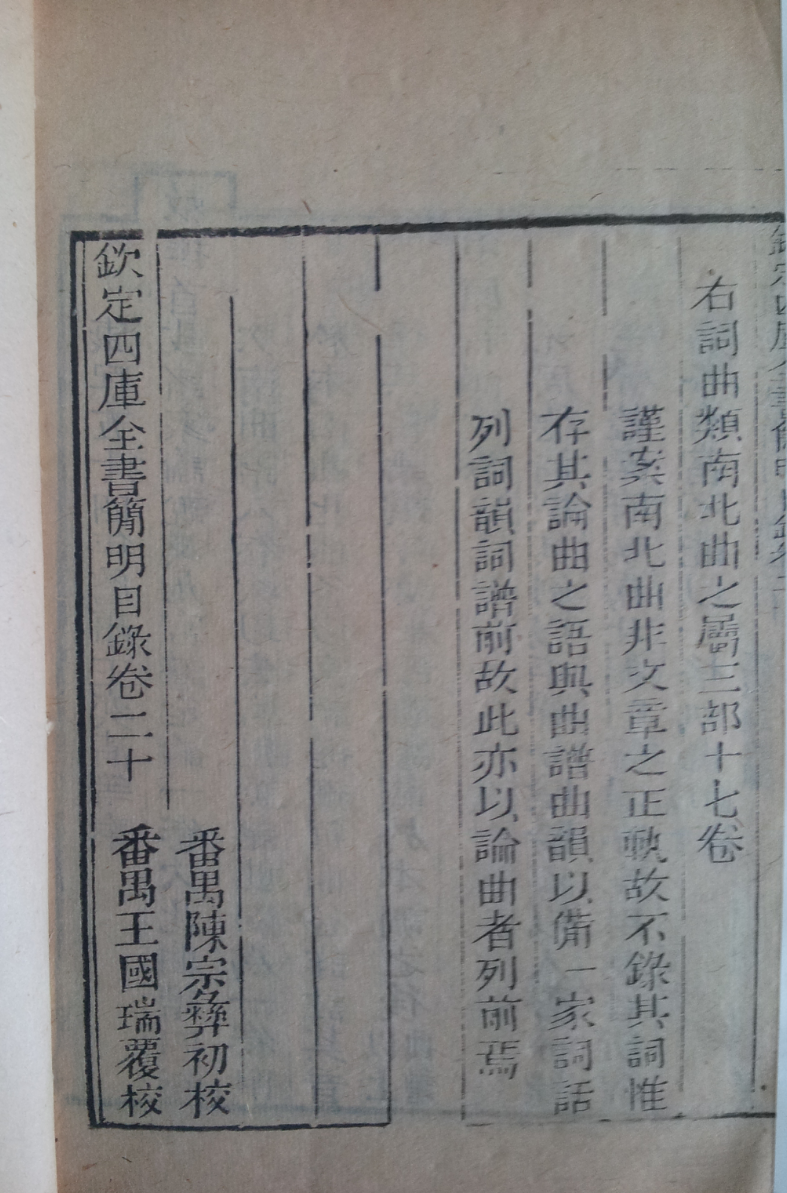 欽定四庫全書簡明目錄卷二十
右詞曲類南北曲之屬三部十七卷
謹案南北曲非文章之正軌故不錄其詞惟
存其論曲之語與曲譜曲韻以備一家詞話
列詞韻詞譜前故此亦以論曲者列前焉
番禺陳宗彝初校
欽定四庫全書簡明目錄卷二十
番禺王國瑞覆校